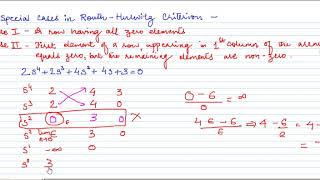 Special cases in Routh-Hurwitz Criterion -
I - A row having all zero elements
II - First element of a row, appearing in 1st column of the array
equals zero, but the remaining elements are non-zero.
2s⁴+2s³+4s²+4s+3=0
s⁴ 2 4 3
s³ 2 4 0
s² 0 ε 3 0 ×
s¹ -∞ 0
s⁰ 3
0-6/0 = ∞
⇒ 4-6/